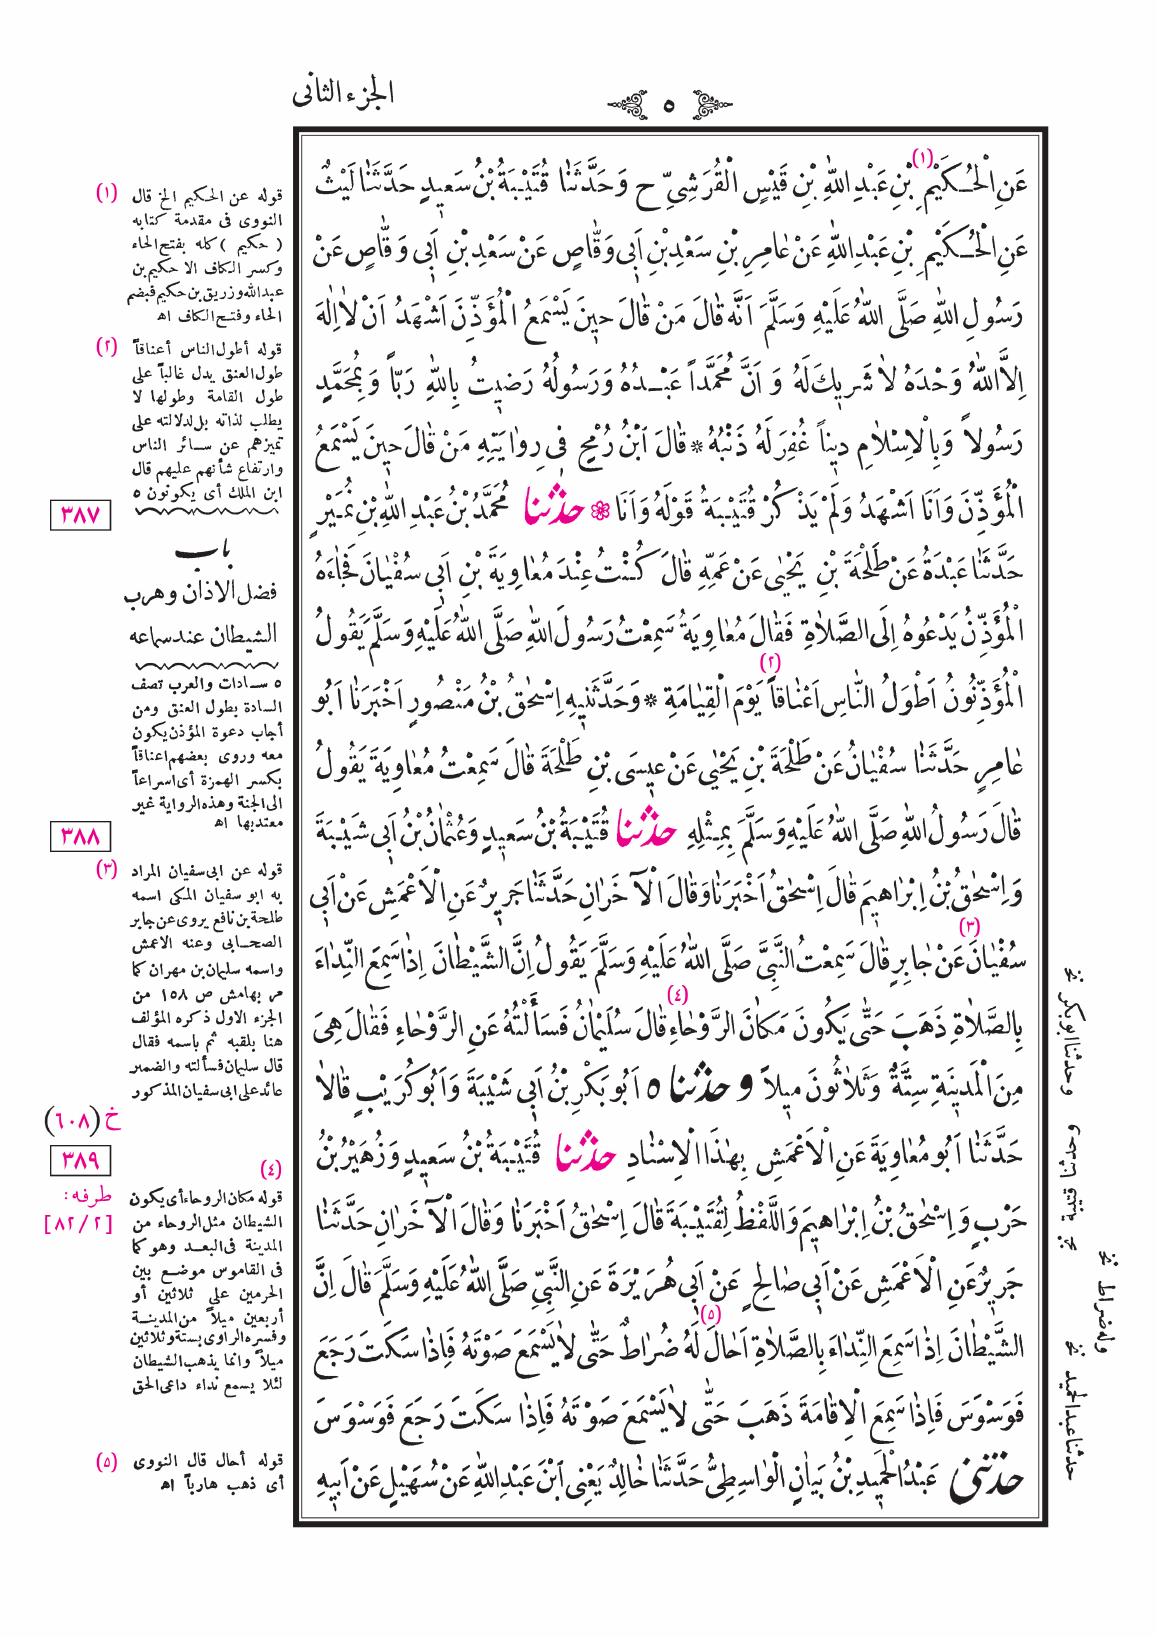 الجزء الثانى
٥
عَنِ الْحُكَيْمِ (١) بْنِ عَبْدِ اللهِ بْنِ قَيْسٍ الْقُرَشِىِّ ح وَحَدَّثَنَا قُتَيْبَةُ بْنُ سَعِيدٍ حَدَّثَنَا لَيْثٌ
عَنِ الْحُكَيْمِ بْنِ عَبْدِ اللهِ عَنْ عَامِرِ بْنِ سَعْدِ بْنِ اَبِى وَقَّاصٍ عَنْ سَعْدِ بْنِ اَبِى وَقَّاصٍ عَنْ
رَسُولِ اللهِ صَلَّى اللهُ عَلَيْهِ وَسَلَّمَ اَنَّهُ قَالَ مَنْ قَالَ حينَ يَسْمَعُ الْمُؤَذِّنَ اَشْهَدُ اَنْ لاَ اِلهَ
اِلاَّ اللهُ وَحْدَهُ لاَ شَرِيكَ لَهُ وَ اَنَّ مُحَمَّداً عَبْدُهُ وَرَسُولُهُ رَضيتُ بِاللهِ رَبّاً وَ بِمُحَمَّدٍ
رَسُولاً وَبِالْاِسْلاَمِ ديناً غُفِرَ لَهُ ذَنْبُهُ * قَالَ ابْنُ رُمْحٍ فِى رِوَايَتِهِ مَنْ قَالَ حينَ يَسْمَعُ
الْمُؤَذِّنَ وَاَنَا اَشْهَدُ وَلَمْ يَذْكُرْ قُتَيْبَةُ قَوْلَهُ وَاَنَا * حدثنا مُحَمَّدُ بْنُ عَبْدِ اللهِ بْنِ نُمَيْرٍ
حَدَّثَنَا عَبْدَةُ عَنْ طَلْحَةَ بْنِ يَحْيٰى عَنْ عَمِّهِ قَالَ كُنْتُ عِنْدَ مُعَاوِيَةَ بْنِ اَبِى سُفْيَانَ فَجَاءَهُ
الْمُؤَذِّنُ يَدْعُوهُ اِلَى الصَّلاَةِ فَقَالَ مُعَاوِيَةُ سَمِعْتُ رَسُولَ اللهِ صَلَّى اللهُ عَلَيْهِ وَسَلَّمَ يَقُولُ
الْمُؤَذِّنُونَ اَطْوَلُ النَّاسِ اَعْنَاقاً (٢) يَوْمَ الْقِيَامَةِ * وَحَدَّثَنيهِ اِسْحٰقُ بْنُ مَنْصُورٍ اَخْبَرَنَا اَبُو
عَامِرٍ حَدَّثَنَا سُفْيَانُ عَنْ طَلْحَةَ بْنِ يَحْيٰى عَنْ عِيسَى بْنِ طَلْحَةَ قَالَ سَمِعْتُ مُعَاوِيَةَ يَقُولُ
قَالَ رَسُولُ اللهِ صَلَّى اللهُ عَلَيْهِ وَسَلَّمَ بِمِثْلِهِ حدثنا قُتَيْبَةُ بْنُ سَعيدٍ وَعُثْمَانُ بْنُ اَبِى شَيْبَةَ
وَاِسْحٰقُ بْنُ اِبْرَاهيمَ قَالَ اِسْحٰقُ اَخْبَرَنَا وَقَالَ الْآخَرَانِ حَدَّثَنَا جَريرٌ عَنِ الْاَعْمَشِ عَنْ اَبِى
سُفْيَانَ (٣) عَنْ جَابِرٍ قَالَ سَمِعْتُ النَّبِىَّ صَلَّى اللهُ عَلَيْهِ وَسَلَّمَ يَقُولُ اِنَّ الشَّيْطَانَ اِذَا سَمِعَ النِّدَاءَ
بِالصَّلاَةِ ذَهَبَ حَتّٰى يَكُونَ مَكَانَ الرَّوْحَاءِ (٤) قَالَ سُلَيْمَانُ فَسَأَلْتُهُ عَنِ الرَّوْحَاءِ فَقَالَ هِىَ
مِنَ الْمَدينَةِ سِتَّةٌ وَثَلاَثُونَ ميلاً و حدثنا ٥ اَبُو بَكْرِ بْنُ اَبِى شَيْبَةَ وَاَبُو كُرَيْبٍ قَالاَ
حَدَّثَنَا اَبُو مُعَاوِيَةَ عَنِ الْاَعْمَشِ بِهٰذَا الْاِسْنَادِ حدثنا قُتَيْبَةُ بْنُ سَعيدٍ وَزُهَيْرُ بْنُ
حَرْبٍ وَاِسْحٰقُ بْنُ اِبْرَاهيمَ وَاللَّفْظُ لِقُتَيْبَةَ قَالَ اِسْحٰقُ اَخْبَرَنَا وَقَالَ الْآخَرَانِ حَدَّثَنَا
جَريرٌ عَنِ الْاَعْمَشِ عَنْ اَبِى صَالِحٍ عَنْ اَبِى هُرَيْرَةَ عَنِ النَّبِىِّ صَلَّى اللهُ عَلَيْهِ وَسَلَّمَ قَالَ اِنَّ
الشَّيْطَانَ اِذَا سَمِعَ النِّدَاءَ بِالصَّلاَةِ اَحَالَ (٥) لَهُ ضُرَاطٌ حَتّٰى لاَ يَسْمَعَ صَوْتَهُ فَاِذَا سَكَتَ رَجَعَ
فَوَسْوَسَ فَاِذَا سَمِعَ الْاِقَامَةَ ذَهَبَ حَتّٰى لاَ يَسْمَعَ صَوْتَهُ فَاِذَا سَكَتَ رَجَعَ فَوَسْوَسَ
حدثنى عَبْدُ الْحَميدِ بْنُ بَيَانٍ الْوَاسِطِىُّ حَدَّثَنَا خَالِدٌ يَعْنِى ابْنَ عَبْدِ اللهِ عَنْ سُهَيْلٍ عَنْ اَبيهِ
(١) قوله عن الحكيم الخ قال
النووى فى مقدمة كتابه
( حكيم ) كله بفتح الحاء
وكسر الكاف الا حكيم بن
عبدالله وزريق بن حكيم فبضم
الحاء وفتح الكاف اه
(٢) قوله أطول الناس أعناقاً
طول العنق يدل غالباً على
طول القامة وطولها لا
يطلب لذاته بل لدلالته على
تميزهم عن سائر الناس
وارتفاع شأنهم عليهم قال
ابن الملك أى يكونون ٥
٣٨٧
باب
فضل الاذان وهرب
الشيطان عند سماعه
٥ سادات والعرب تصف
السادة بطول العنق ومن
أجاب دعوة المؤذن يكون
معه وروى بعضهم اعناقاً
بكسر الهمزة أى اسراعاً
الى الجنة وهذه الرواية غير
معتد بها اه
٣٨٨
(٣) قوله عن ابى سفيان المراد
به ابو سفيان المكى اسمه
طلحة بن نافع يروى عن جابر
الصحابى وعنه الاعمش
واسمه سليمان بن مهران كما
مر بهامش ص ١٥٨ من
الجزء الاول ذكره المؤلف
هنا بلقبه ثم باسمه فقال
قال سليمان فسألته والضمير
عائد على ابى سفيان المذكور
خ (٦٠٨)
٣٨٩
طرفه :
[٨٢/٢]
(٤)
قوله مكان الروحاء أى يكون
الشيطان مثل الروحاء من
المدينة فى البعد وهو كما
فى القاموس موضع بين
الحرمين على ثلاثين أو
أربعين ميلاً من المدينة
وفسره الراوى بستة وثلاثين
ميلاً وانما يذهب الشيطان
لئلا يسمع نداء داعى الحق
(٥) قوله أحال قال النووى
أى ذهب هارباً اه
وحدثنا ابوبكر نخ
وله ضراط نخ
حدثنا عبدالحميد نخ